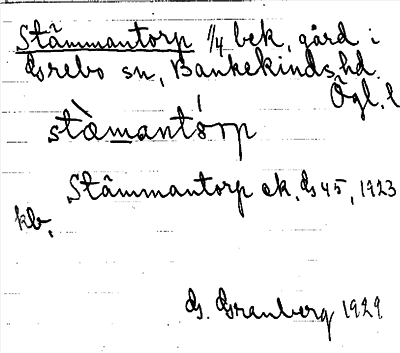 Stämmantorp 1/4 bek. gård i
Grebo sn, Bankekinds hd.
Ögl. l
stæ̀mantórp
Stämmantorp ek. G 45, 1923
kb.
G. Granberg 1929